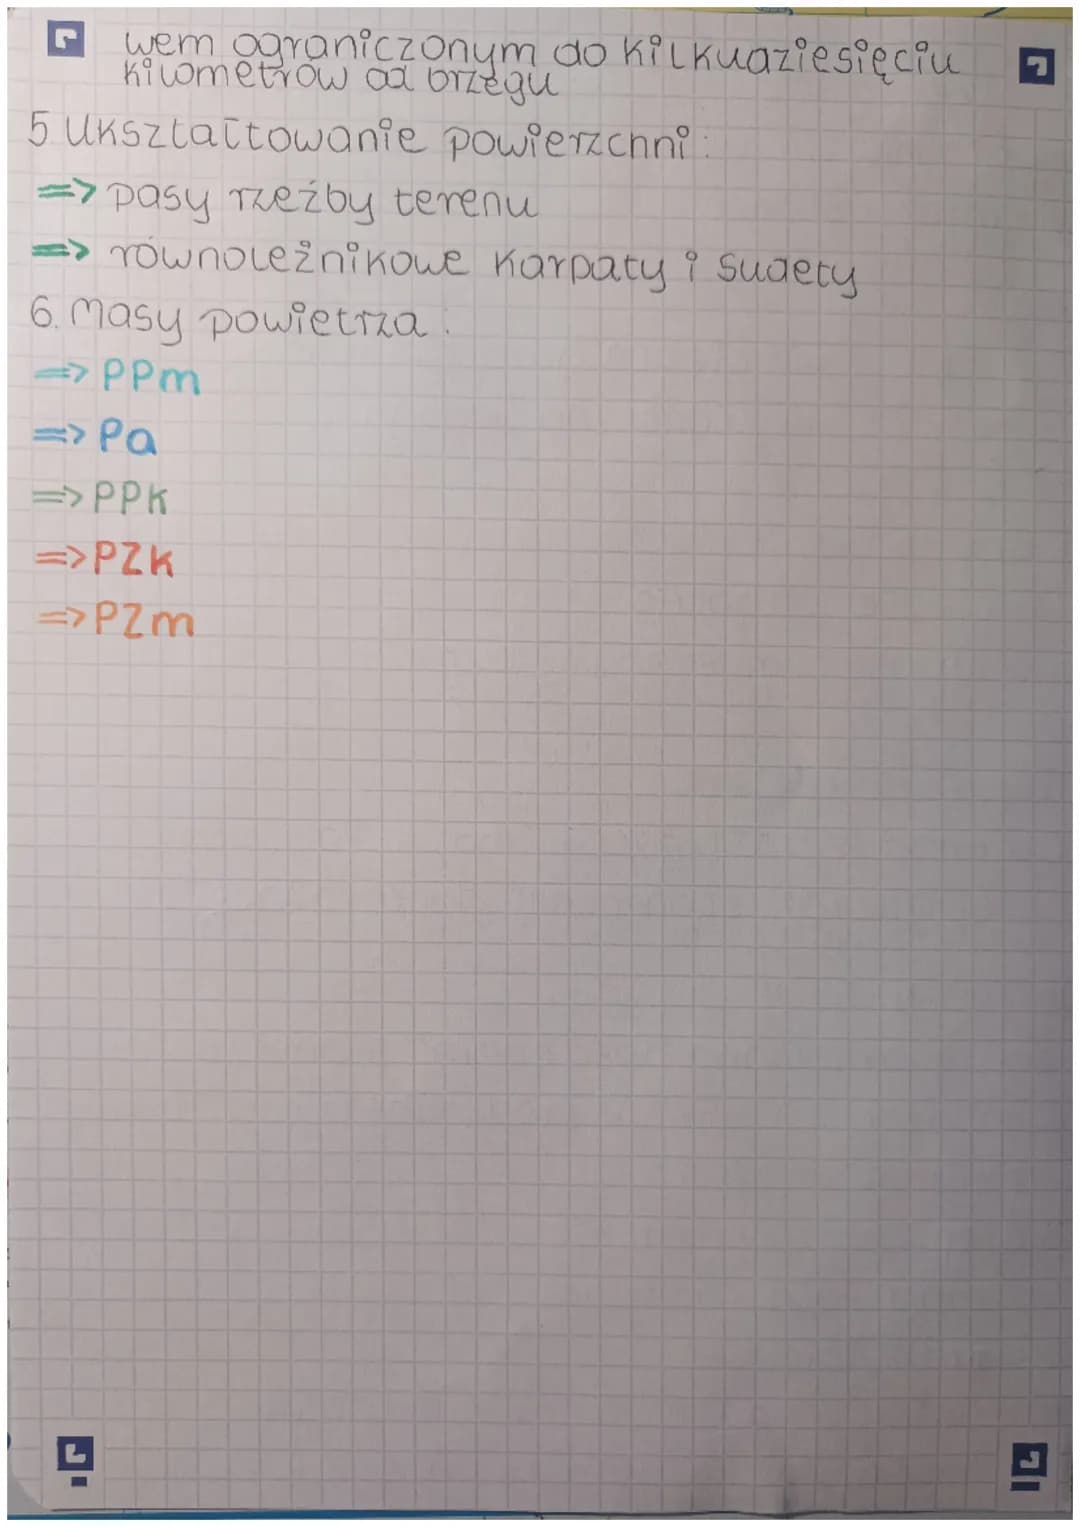 wem ograniczonym do kilkudziesięciu
kilometrów od brzegu
5. Ukształtowanie powierzchni:
=> pasy rzeźby terenu
=> równoleżnikowe Karpaty i Sudety
6. Masy powietrza:
=> PPm
=> Pa
=> PPk
=> PZk
=> PZm